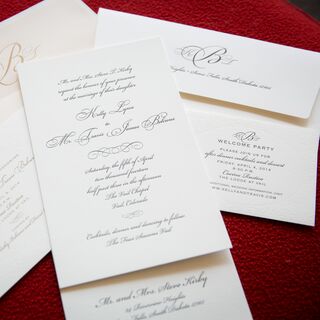 Mr. and Mrs. Steve P. Kirby
request the pleasure of your company
at the marriage of their daughter
Kelly Lynn
to
Mr. Travis James Behnes
Saturday, the fifth of April
two thousand fourteen
half past three in the afternoon
The Vail Chapel
Vail, Colorado
Cocktails, dinner and dancing to follow
The Four Seasons Vail
B
Falls, South Dakota
B
WELCOME PARTY
PLEASE JOIN US FOR
after dinner cocktails and dessert
FRIDAY, APRIL 4, 2014
THE LODGE AT VAIL
WWW.KELLYANDTRAVIS.COM
Mr. and Mrs. Steve Kirby
Heights
Falls, South Dakota